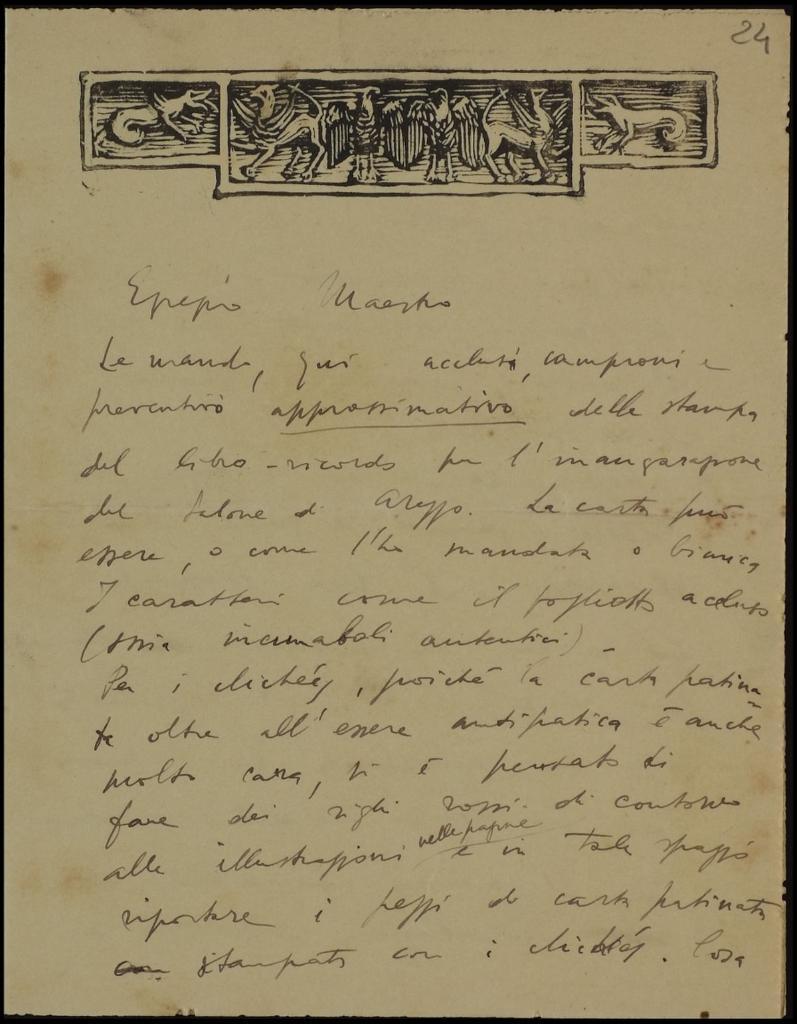 24
Egregio Maestro
Le mando, qui acclusi, campioni e
preventivo approssimativo della stampa
del libro-ricordo per l'inaugurazione
del salone di Arezzo. La carta può
essere, o come l'ho mandata o bianca
I caratteri come il foglietto accluso
(ossia incunaboli autentici)
Per i clichées, poiché la carta patina=
ta oltre all'essere antipatica è anche
molto cara, si è pensato di
fare dei righi rossi di contorno
alle illustrazioni nelle pagine e in tale spazio
riportare i pezzi di carta patinata
stampata con i clichées. Cosa